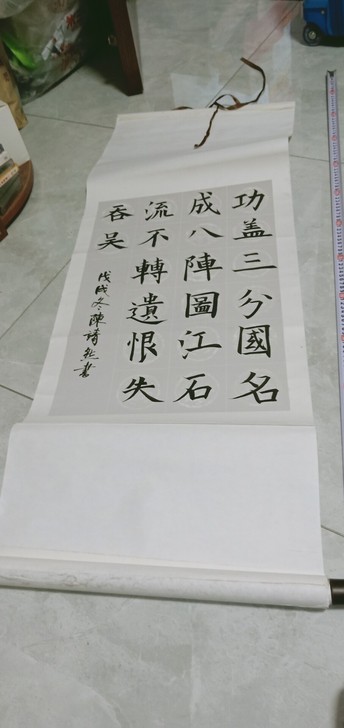 功盖三分國名
成八陣圖江石
流不轉遺恨失
吞吴
戊戌冬陳詩然書